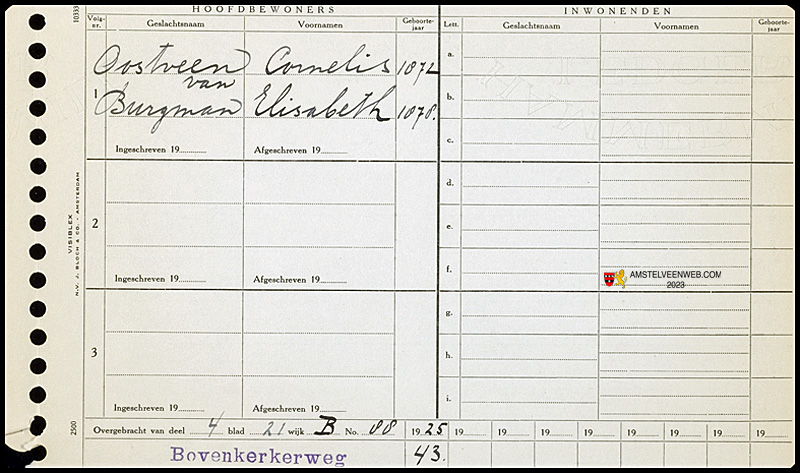 HOOFDBEWONERS INWONENDEN
Volg-nr. Geslachtsnaam Voornamen Geboorte-jaar Lett. Geslachtsnaam Voornamen Geboorte-jaar
10333
Oostveen Cornelis 1872 a.
van
1 Burgman Elisabeth 1878. b.
c.
Ingeschreven 19 Afgeschreven 19
d.
2
e.
f.
AMSTELVEENWEB.COM
2023
Ingeschreven 19 Afgeschreven 19
g.
3
h.
i.
Ingeschreven 19 Afgeschreven 19
VISIBLEX
N.V. J. BLOCH & CO. - AMSTERDAM
2500
Overgebracht van deel 4 blad 21 wijk B No. 88 1925 19 19 19 19 19 19 19 19
Bovenkerkerweg 43.